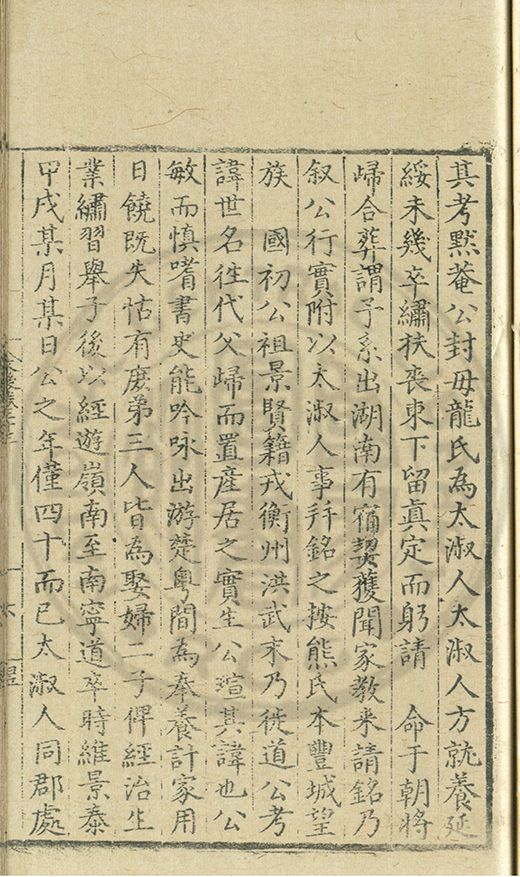 其考默菴公封母龍氏為太淑人太淑人方就養延
綏未幾卒繡扶喪東下留真定而躬請　命于朝將
歸合葬謂予系出湖南有宿契獲聞家教来請銘乃
叙公行實附以太淑人事并銘之按熊氏本豐城望
族　國初公祖景賢籍戎衡州洪武末乃徙道公考
諱世名往代父歸而置產居之實生公瑄其諱也公
敏而慎嗜書史能吟咏出游楚粤間為奉養計家用
日饒既失怙有庶弟三人皆為娶婦二子俾經治生
業繡習舉子後以經遊嶺南至南寧道卒時維景泰
甲戌某月某日公之年僅四十而已太淑人同郡處